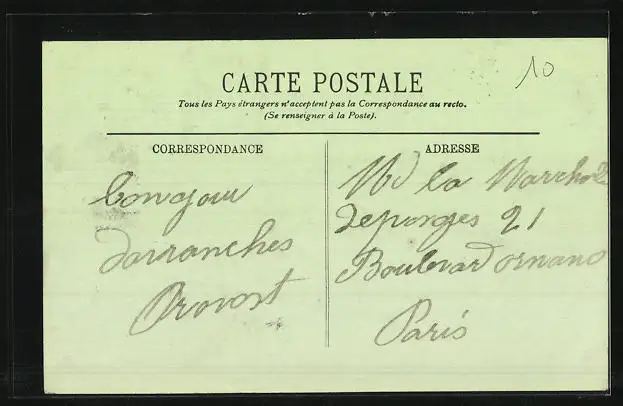 10
CARTE POSTALE
Tous les Pays étrangers n'acceptent pas la Correspondance au recto.
(Se renseigner à la Poste).
CORRESPONDANCE
bonjour
davranches
Provost
ADRESSE
Md la Marchal
21
Boulevard ornano
Paris